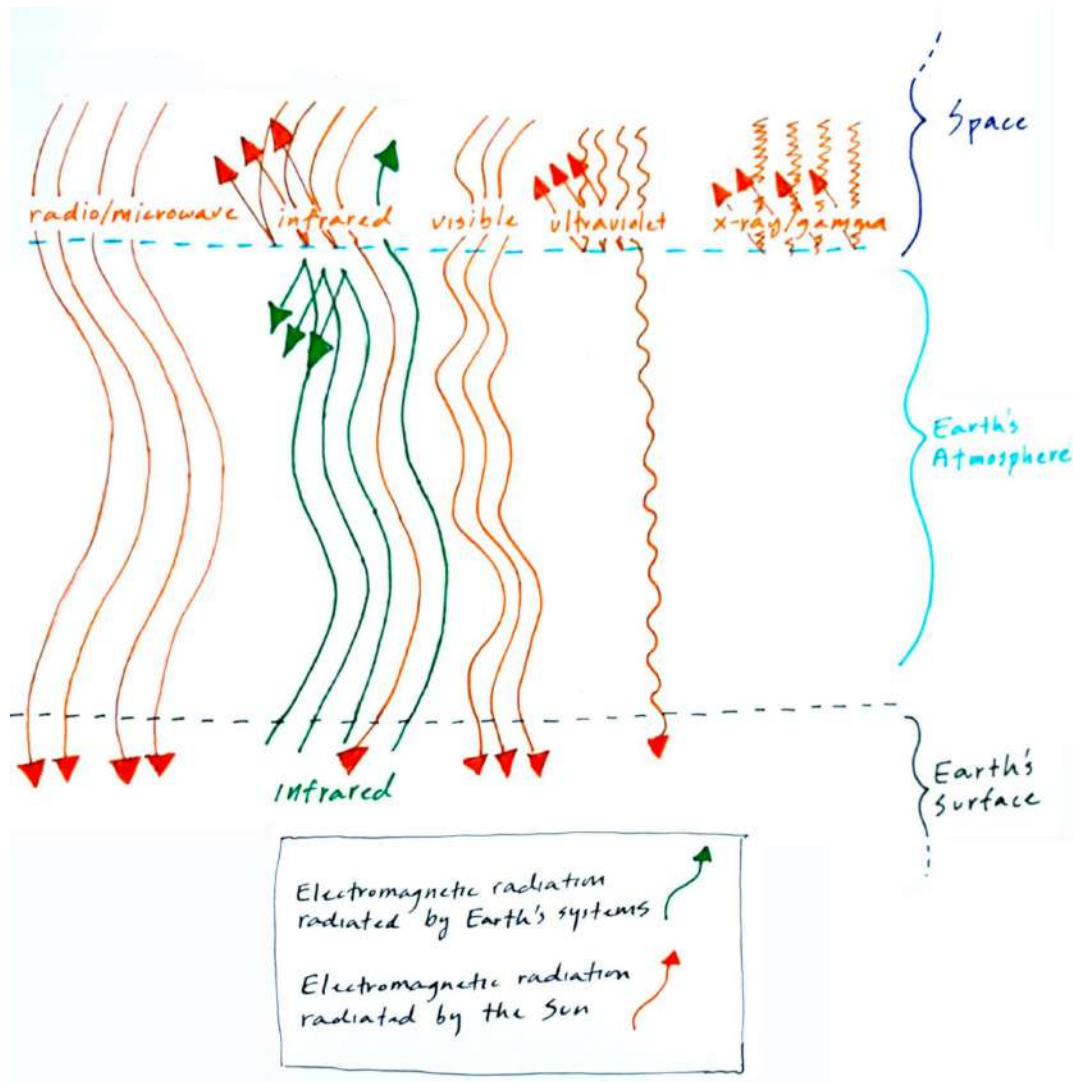 Space
radio/microwave
infrared
visible
ultraviolet
x-ray/gamma
Earth's
Atmosphere
Earth's
Surface
Infrared
Electromagnetic radiation
radiated by Earth's systems
Electromagnetic radiation
radiated by the Sun